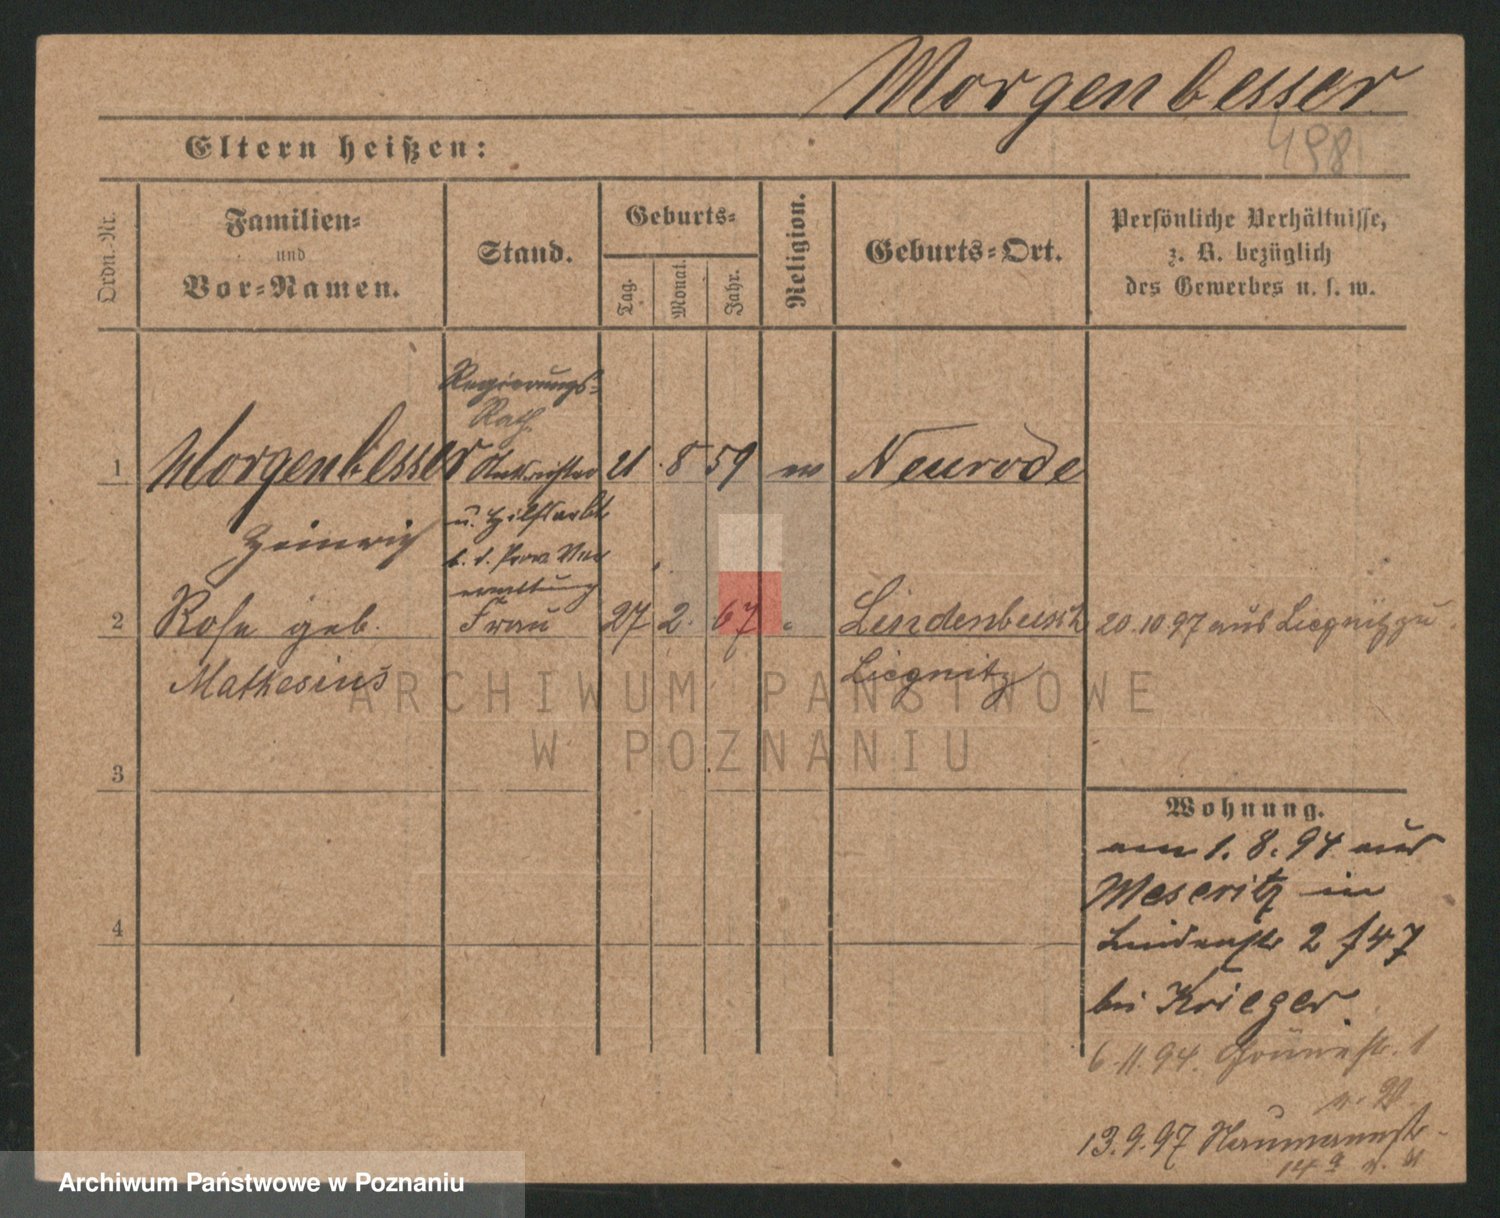 Morgenbesser
498
Eltern heißen:
Ordn.-Nr.
Familien-
und
Vor-Namen.
Stand.
Geburts-
Tag.
Monat.
Jahr.
Religion.
Geburts-Ort.
Persönliche Verhältnisse,
z. B. bezüglich
des Gewerbes u. s. w.
Regierungs-
Rath
1 Morgenbesser 21 8 59 Neurode
Heinrich
u. Hilfsarbt
b. d. Prov. Ver
waltung
2 Rosa geb. Frau 27 2. 67 Lindenbusch 20.10.97 aus Liegnitz zu
Mathesius Liegnitz
3
Wohnung.
am 1. 8. 94 aus
Meseritz in
4 Lindenstr 2
bei Krieger
6.11.94. 1
13.9.97 Naumannstr.
ARCHIWUM PAŃSTWOWE
W POZNANIU
Archiwum Państwowe w Poznaniu